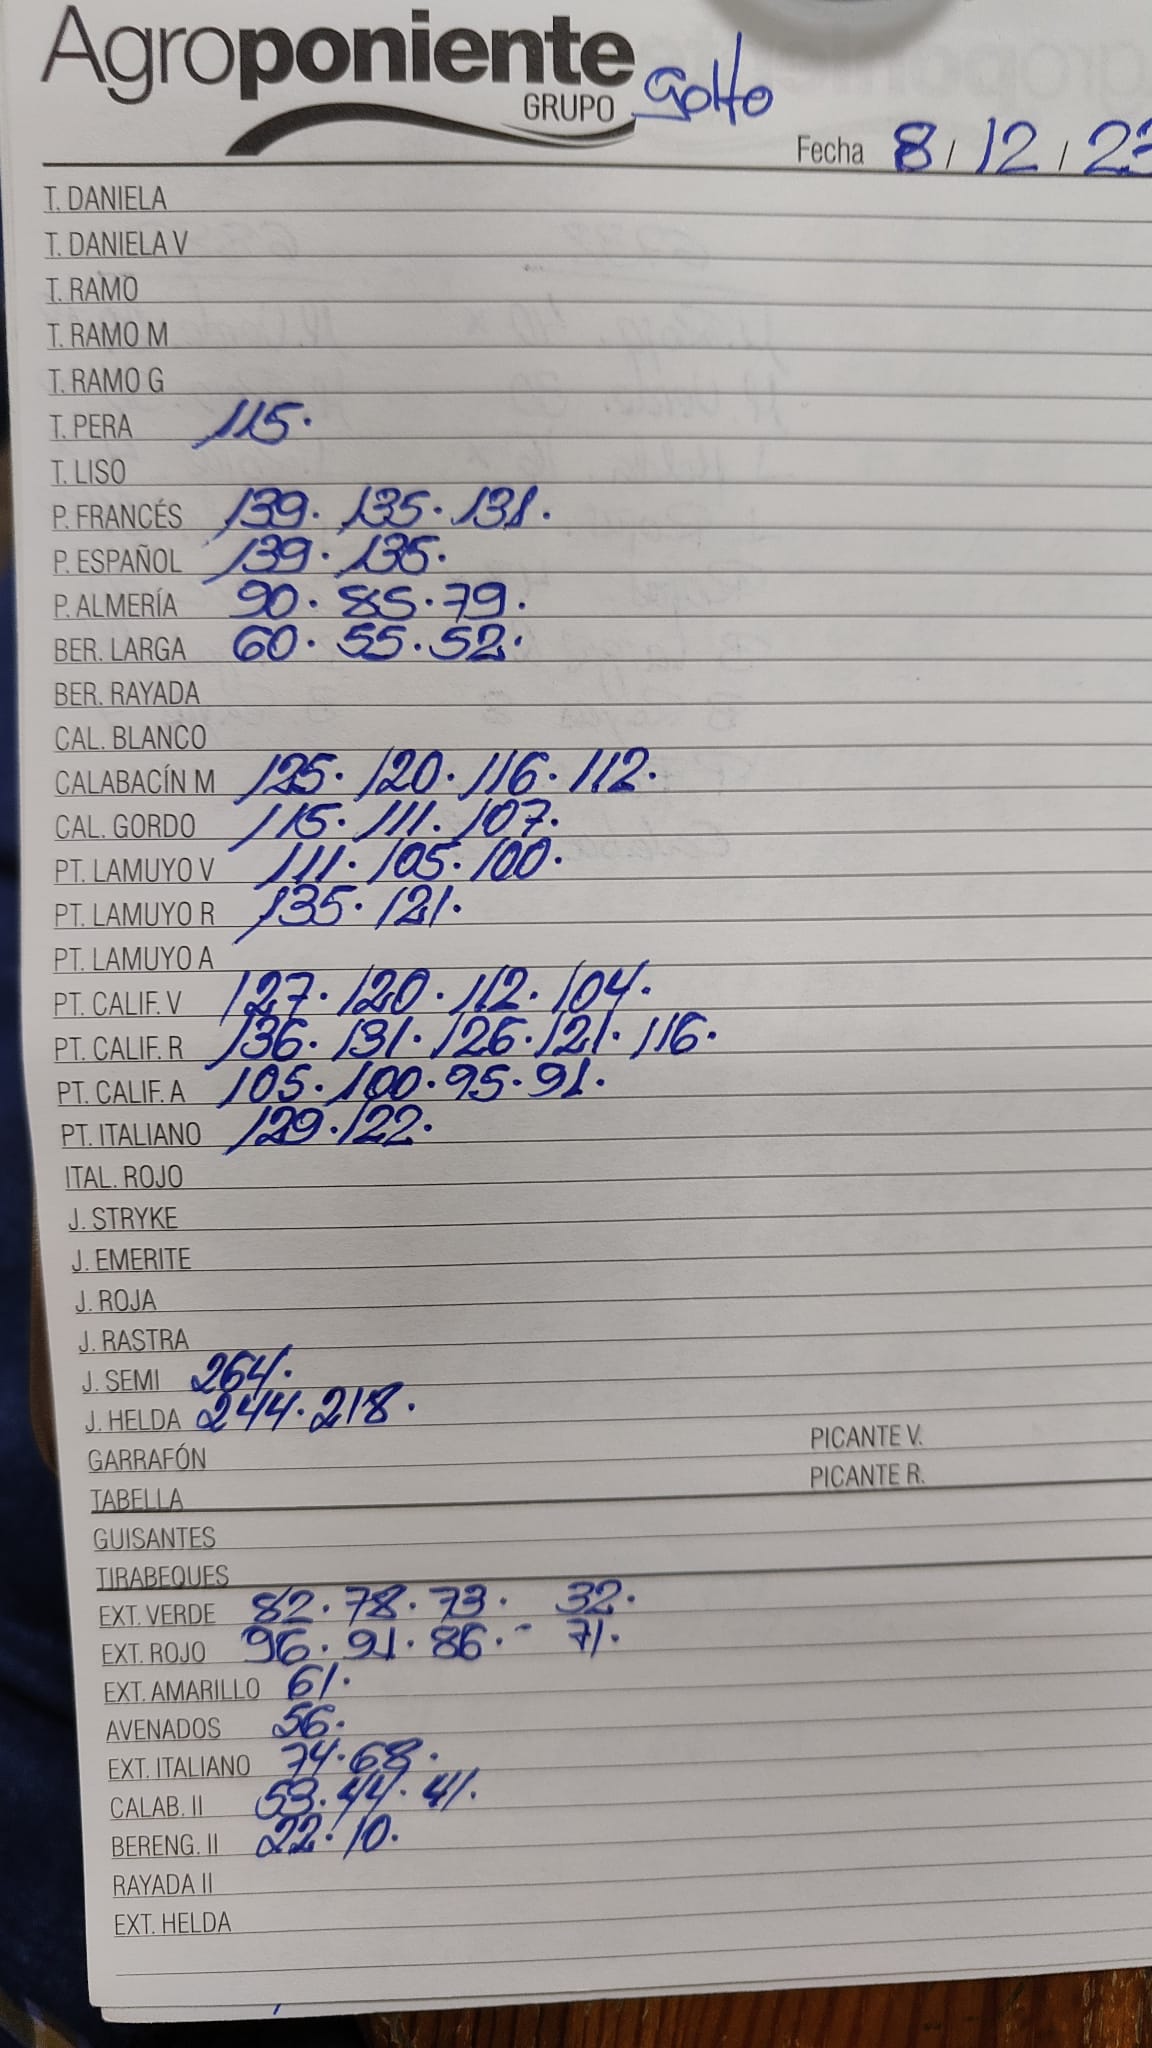 Agroponiente
GRUPO
Golfo
Fecha 8/12/23
T. DANIELA
T. DANIELA V
T. RAMO
T. RAMO M
T. RAMO G
T. PERA 115.
T. LISO
P. FRANCÉS 139. 135. 131.
P. ESPAÑOL 139. 135.
P. ALMERÍA 90. 85. 79.
BER. LARGA 60. 55. 52.
BER. RAYADA
CAL. BLANCO
CALABACÍN M 125. 120. 116. 112.
CAL. GORDO 115. 111. 107.
PT. LAMUYO V 111. 105. 100.
PT. LAMUYO R 135. 121.
PT. LAMUYO A
PT. CALIF. V 127. 120. 112. 104.
PT. CALIF. R 136. 131. 126. 121. 116.
PT. CALIF. A 105. 100. 95. 91.
PT. ITALIANO 129. 122.
ITAL. ROJO
J. STRYKE
J. EMERITE
J. ROJA
J. RASTRA
J. SEMI 264.
J. HELDA 244. 218.
GARRAFÓN PICANTE V.
TABELLA PICANTE R.
GUISANTES
TIRABEQUES
EXT. VERDE 82. 78. 73. 32.
EXT. ROJO 96. 91. 86. - 71.
EXT. AMARILLO 61.
AVENADOS 56.
EXT. ITALIANO 74. 68.
CALAB. II 53. 44. 41.
BERENG. II 22. 10.
RAYADA II
EXT. HELDA